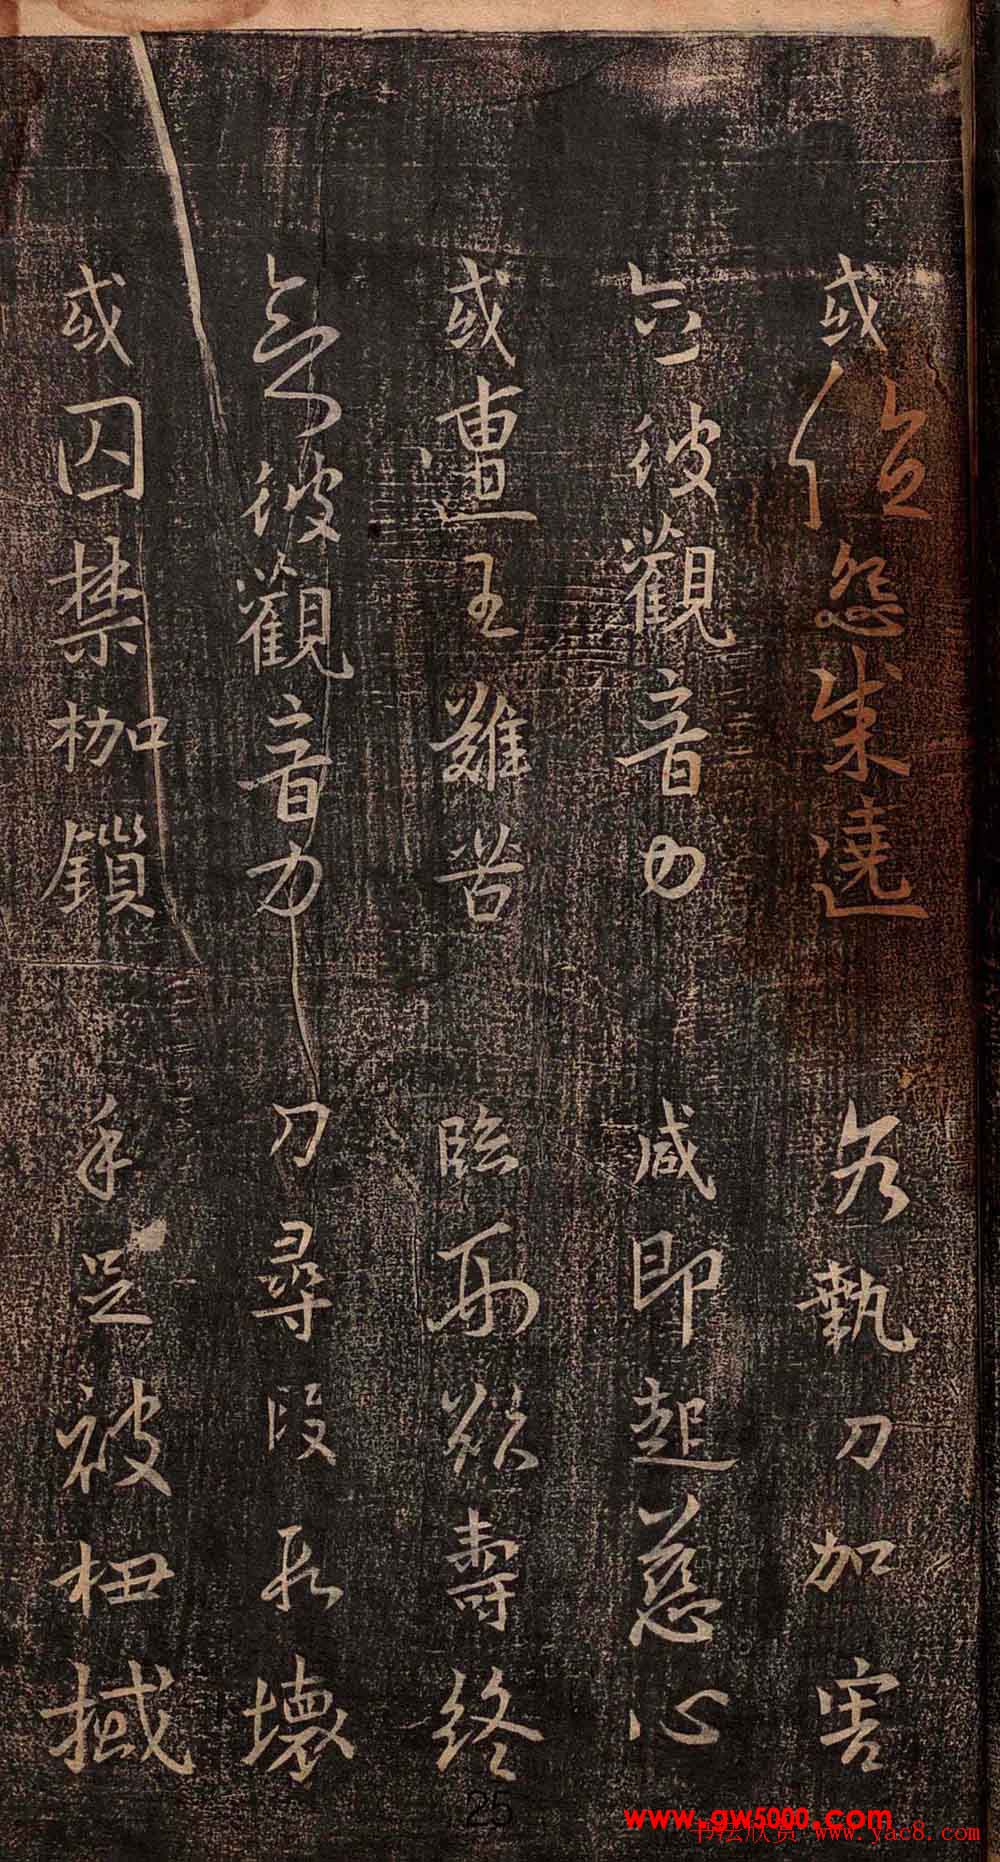 或值怨賊遶　各執刀加害
念彼觀音力　咸即起慈心
或遭王難苦　臨刑欲壽終
念彼觀音力　刀尋段段壞
或囚禁枷鎖　手足被杻械
25
www.gw5000.com
书法欣赏 www.yac8.com